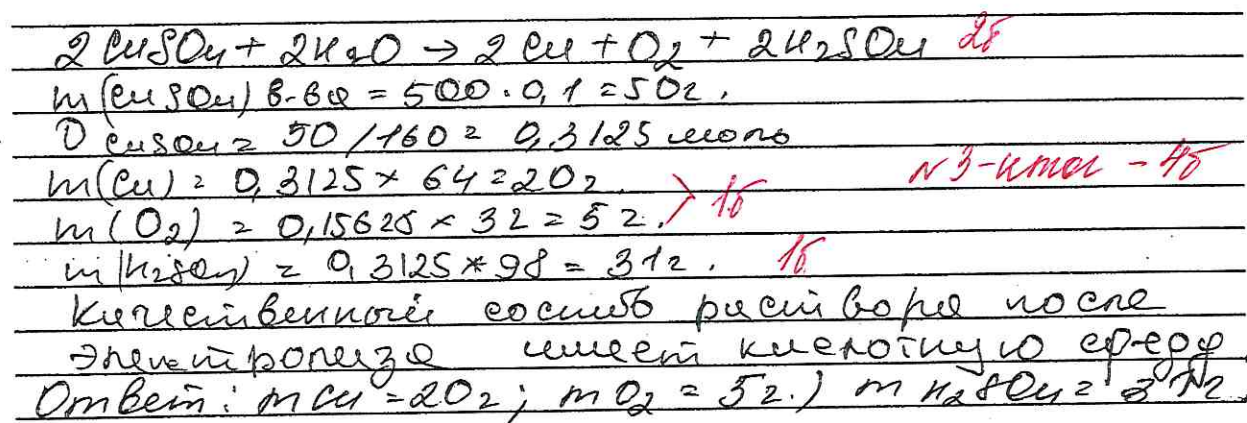 2CuSO₄ + 2H₂O → 2Cu + O₂ + 2H₂SO₄ 2б
m(CuSO₄) в-ва = 500 · 0,1 = 50г.
ν CuSO₄ = 50/160 = 0,3125 моль
m(Cu) = 0,3125 × 64 = 20г. N3-итог - 4б
m(O₂) = 0,15625 × 32 = 5г. > 1б
m(H₂SO₄) = 0,3125 * 98 = 31г. 1б
Качественный состав раствора после
электролиза имеет кислотную среду
Ответ: mCu = 20г; mO₂ = 5г.; m H₂SO₄ = 31г.